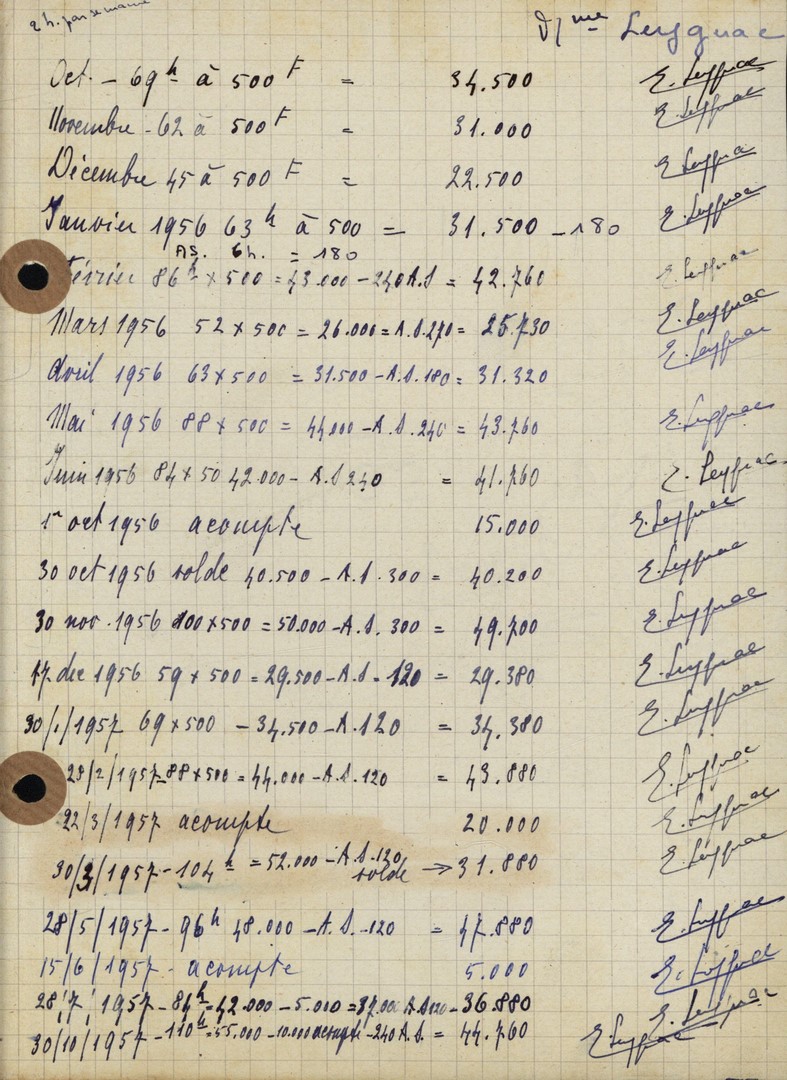 2 h. par semaine
Mme Leyguac
Oct. - 69h à 500F = 34.500 E. Leyguac
Novembre - 62 à 500F = 31.000 E. Leyguac
Décembre 45 à 500F = 22.500 E. Leyguac
Janvier 1956 63h à 500 = 31.500 - 180 E. Leyguac
AS. 6h. = 180
Février 86h x 500 = 43.000 - 240 A.S = 42.760 E. Leyguac
Mars 1956 52 x 500 = 26.000 = A.S. 270 = 25.730 E. Leyguac
Avril 1956 63 x 500 = 31.500 - A.S. 180 = 31.320 E. Leyguac
Mai 1956 88 x 500 = 44.000 - A.S. 240 = 43.760 E. Leyguac
Juin 1956 84 x 50 42.000 - A.S 240 = 41.760 E. Leyguac
1er oct 1956 acompte 15.000 E. Leyguac
30 oct 1956 solde 40.500 - A.S. 300 = 40.200 E. Leyguac
30 nov. 1956 100 x 500 = 50.000 - A.S. 300 = 49.700 E. Leyguac
17 dec 1956 59 x 500 = 29.500 - A.S - 120 = 29.380 E. Leyguac
30/1/1957 69 x 500 - 34.500 - A. 120 = 34.380 E. Leyguac
28/2/1957 - 88 x 500 = 44.000 - A.S. 120 = 43.880 E. Leyguac
22/3/1957 acompte 20.000 E. Leyguac
30/3/1957 - 104h = 52.000 - A.S. 120 solde → 31.880 E. Leyguac
28/5/1957 - 96h 48.000 - A.S. - 120 = 47.880 E. Leyguac
15/6/1957 - acompte 5.000 E. Leyguac
28/7/1957 - 84h = 42.000 - 5.000 = 37.000 A.S 120 - 36.880 E. Leyguac
30/10/1957 - 110h = 55.000 - 10.000 acompte - 240 A.S. = 44.760 E. Leyguac